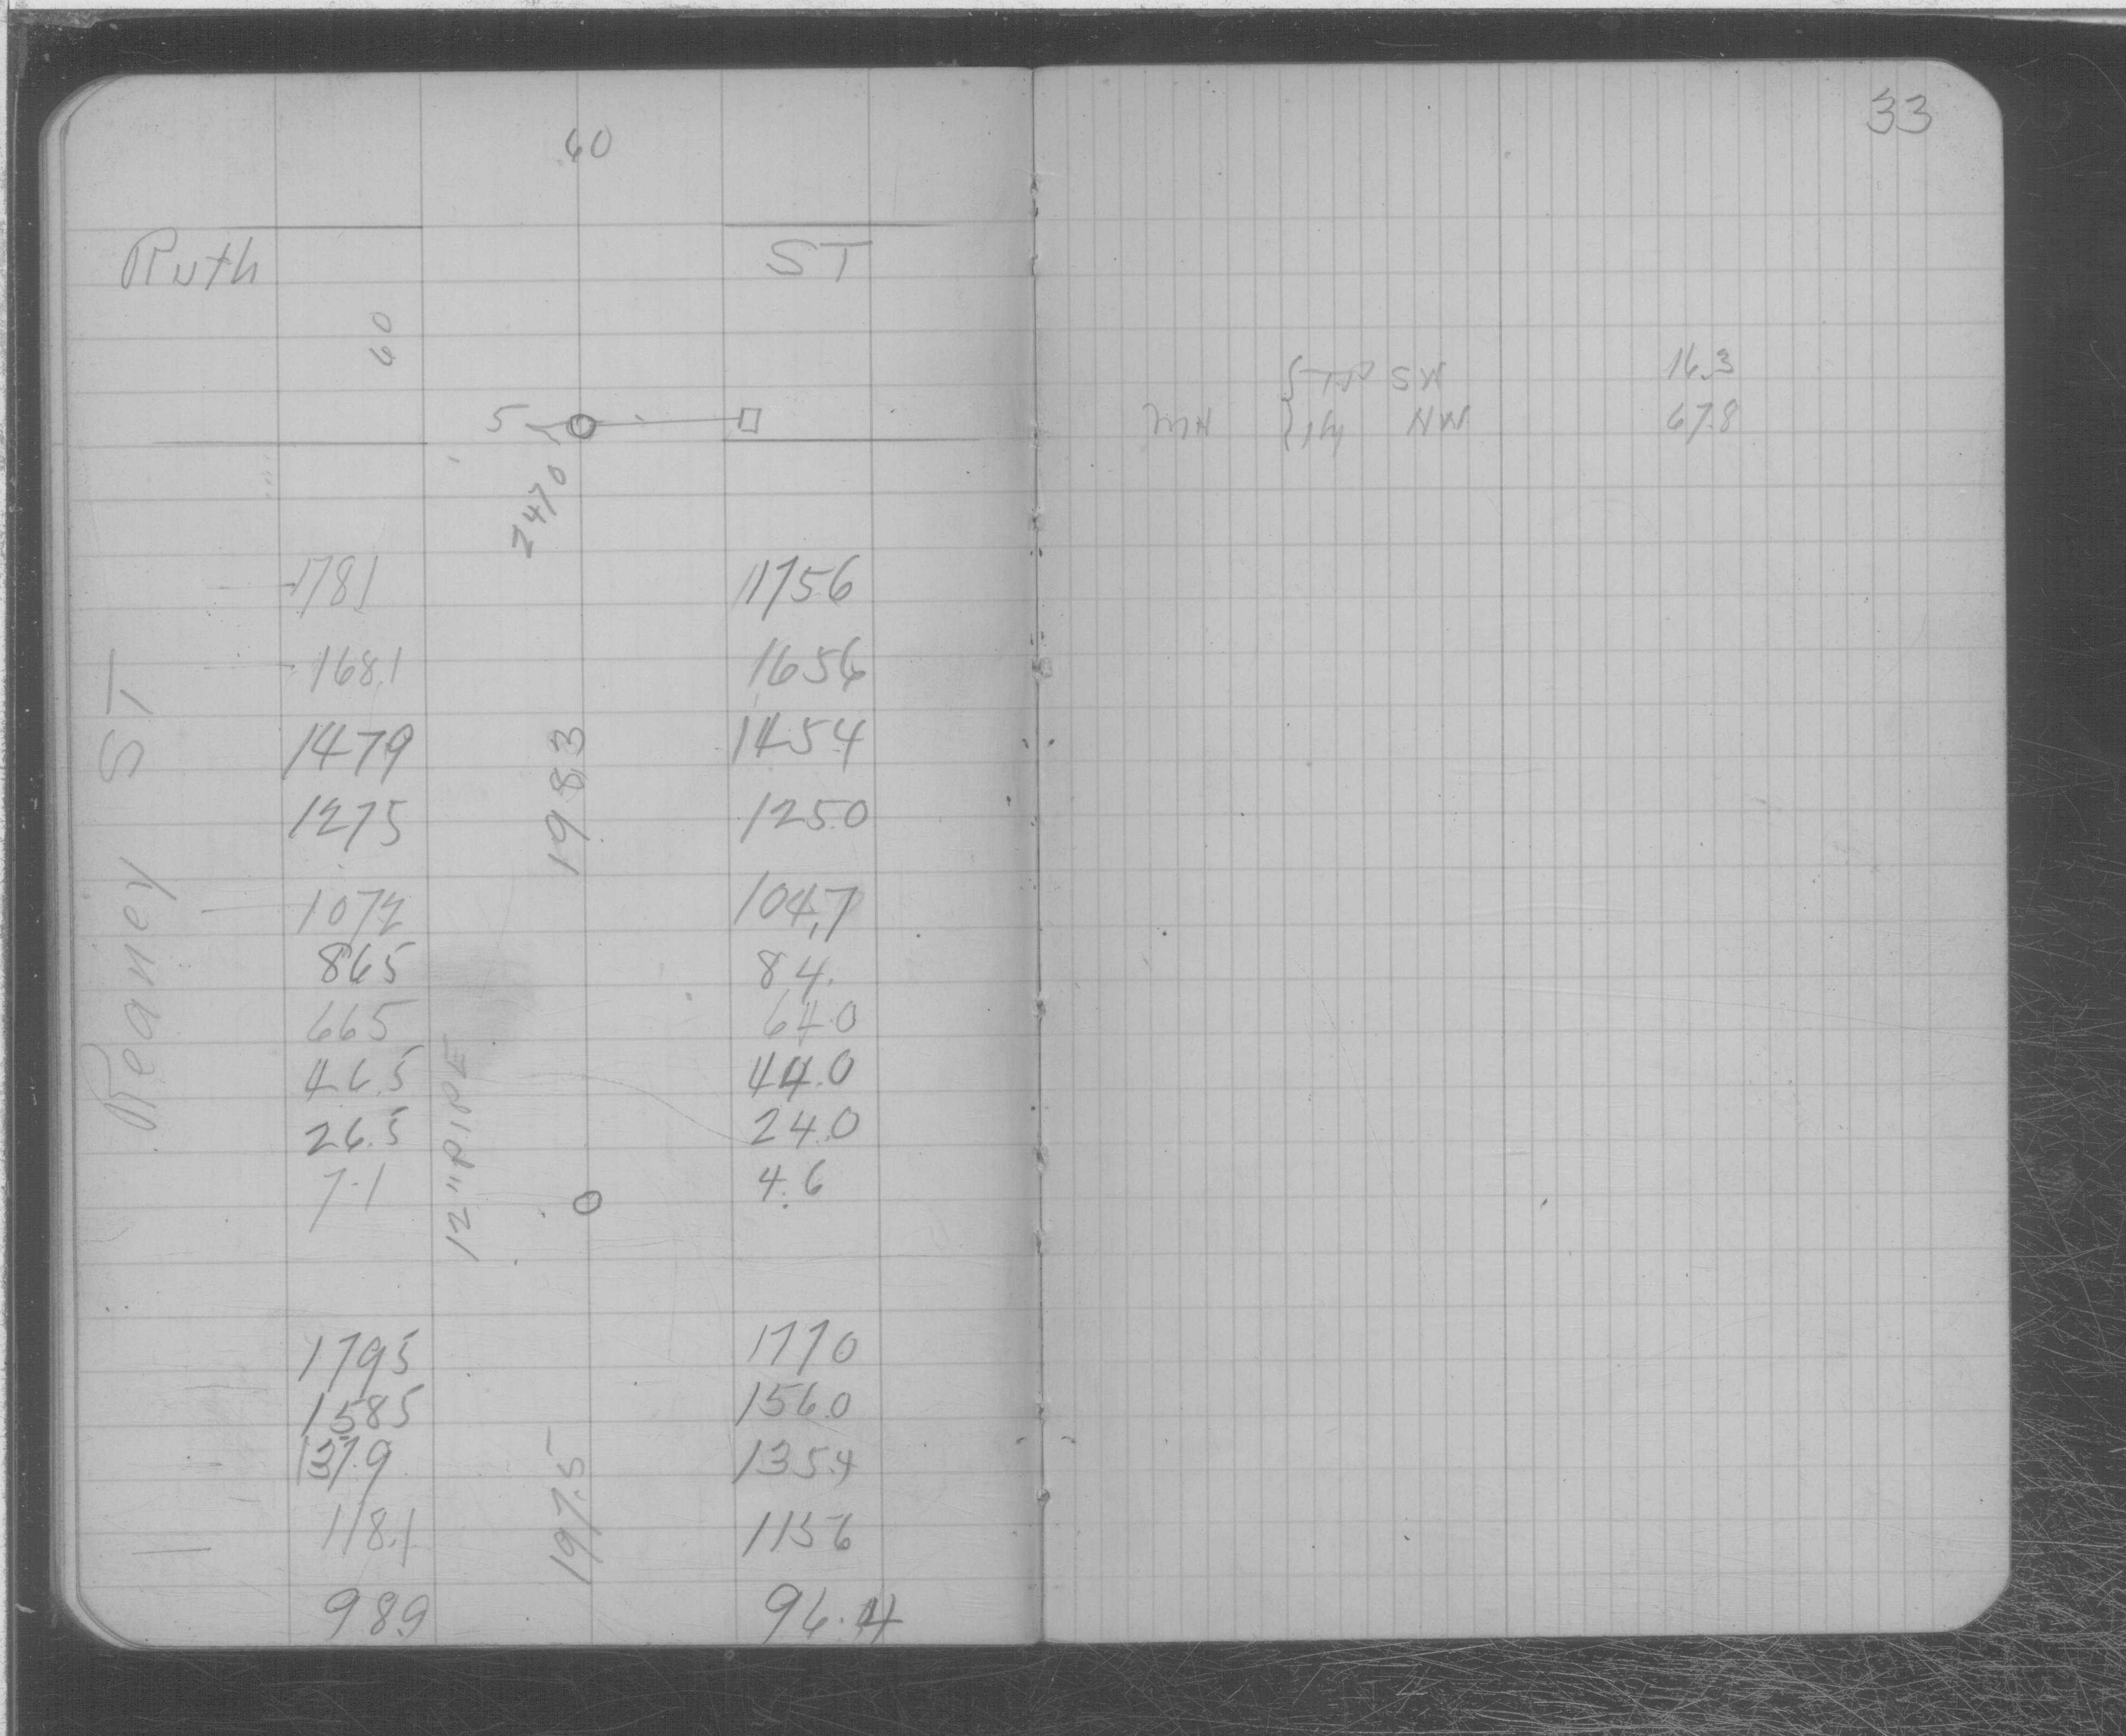 33
60
Ruth ST
60
16.3
SW
5
MH NW 67.8
2470
1781 1756
168.1 1656
1479 1454
1983
1275 1250
Reaney ST
1072 104.7
865 84.
665 64.0
46.5 44.0
26.5 24.0
12" PIPE
7.1 4.6
1795 1770
1585 156.0
137.9 135.4
197.5
118.1 1156
989 96.4